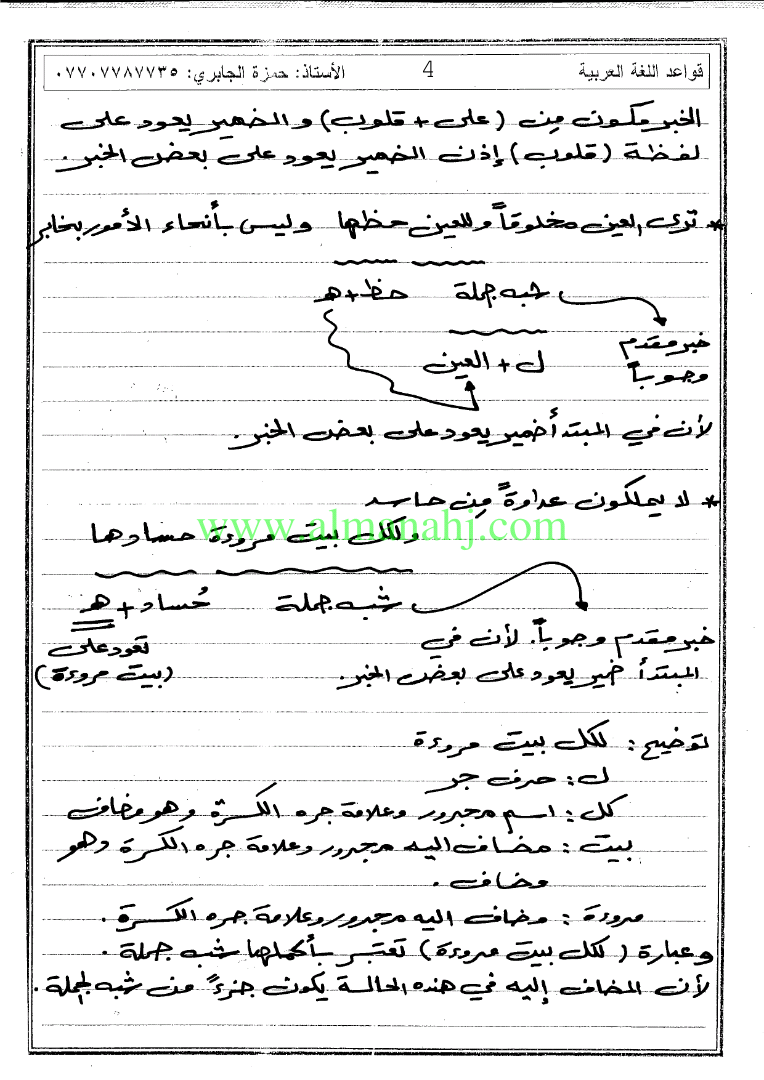 قواعد اللغة العربية 4 الأستاذ: حمزة الجابري: ٠٧٧٠٧٧٨٧٧٣٥
الخبر مكون مِن (على + قلوب) والضمير يعود على
لفظة (قلوب) إذن الضمير يعود على بعض الخبر.
* ترى العين مخلوقاً وللعين حظها وليس بأنحاء الأمور بخابر
شبه جملة حظ + ها
خبر مقدم
وجوباً
ل + العين
لأن في المبتدأ ضمير يعود على بعض الخبر.
* لا يملكون عداوةً مِن حاسد
www.almanahj.com
ولكل بيت مروءة حسادها
شبه جملة حُساد + ها
خبر مقدم وجوباً. لأن في تعود على
المبتدأ ضمير يعود على بعض الخبر. (بيت مروءة)
توضيح: لكل بيت مروءة
ل: حرف جر
كل: اسم مجرور وعلامة جره الكسرة وهو مضاف
بيت: مضاف اليه مجرور وعلامة جره الكسرة وهو
مضاف.
مروءة: مضاف اليه مجرور وعلامة جره الكسرة.
وعبارة (لكل بيت مروءة) تعتبر بأكملها شبه جملة.
لأن المضاف إليه في هذه الحالة يكون جزءً من شبه الجملة.